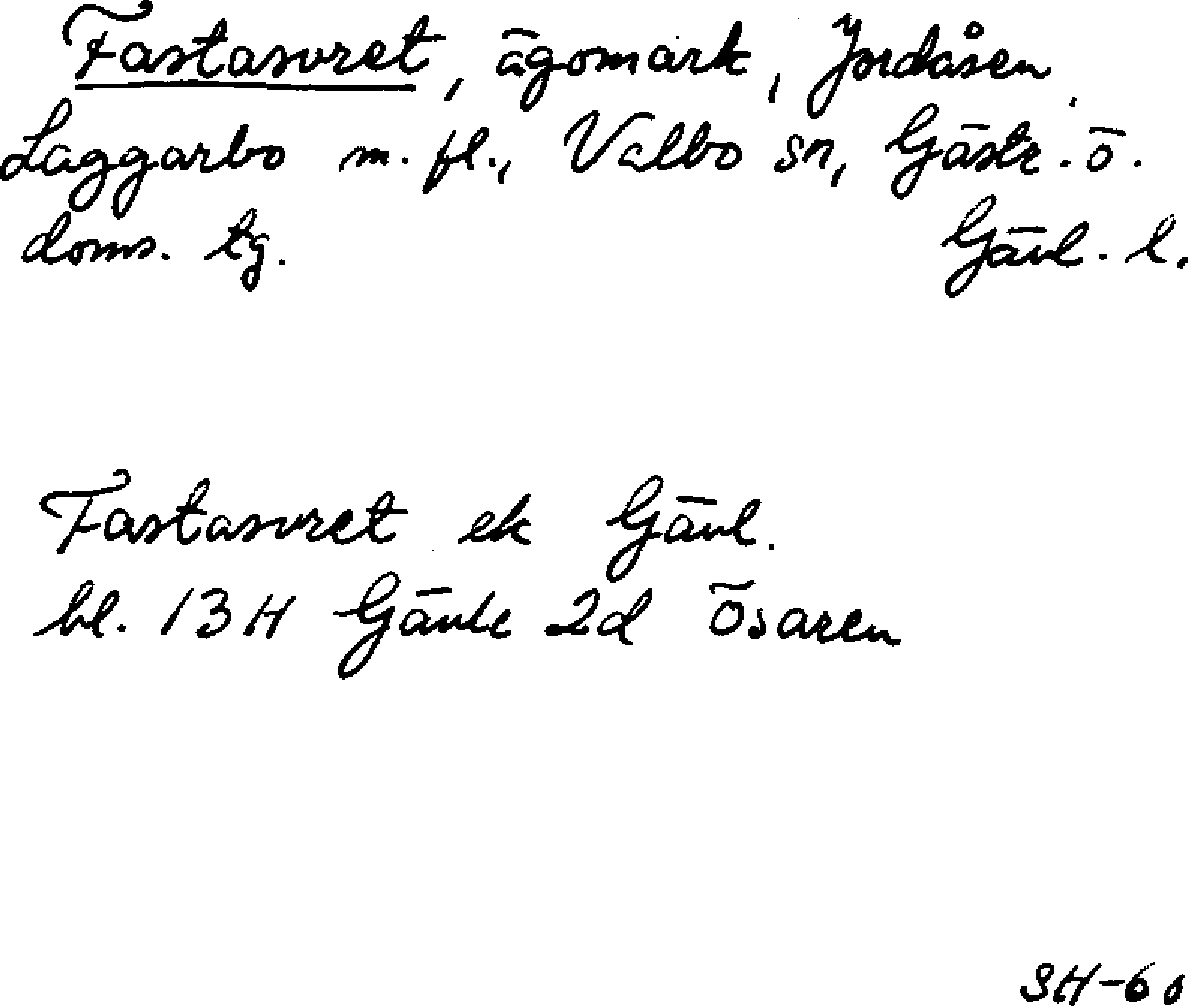 Fastasvret, ägomark, Jordåsen,
Laggarbo m. fl., Valbo sn, Gästr. ö.
doms. tg. Gävl. l.
Fastasvret ek Gävl.
bl. 13H Gävle 2d Ösaren
SH-60